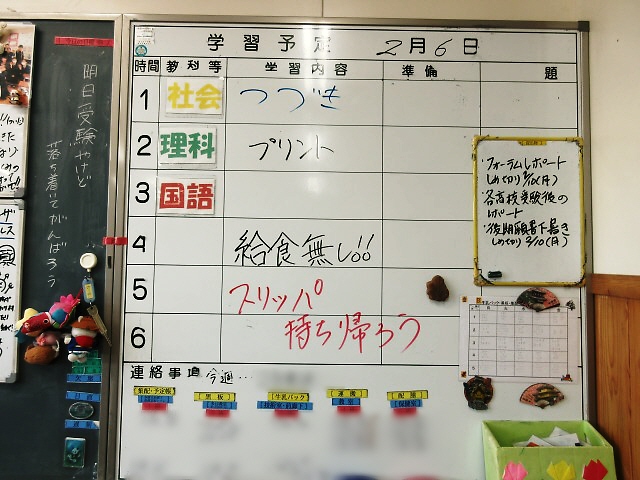 明日受験やけど
落ち着いてがんばろう
学習予定 2月6日
時間 教科等 学習内容 準備 題
1 社会 つづき
2 理科 プリント
3 国語
4 給食無し!!
5 スリッパ
6 持ち帰ろう
・フォーラムレポート
しめ切り2/10(月)
・各高校受験後の
レポート
・後期願書下書き
しめ切り2/10(月)
連絡事項 今週…
集配・予定帳
黒板
牛乳パック
運搬
配膳